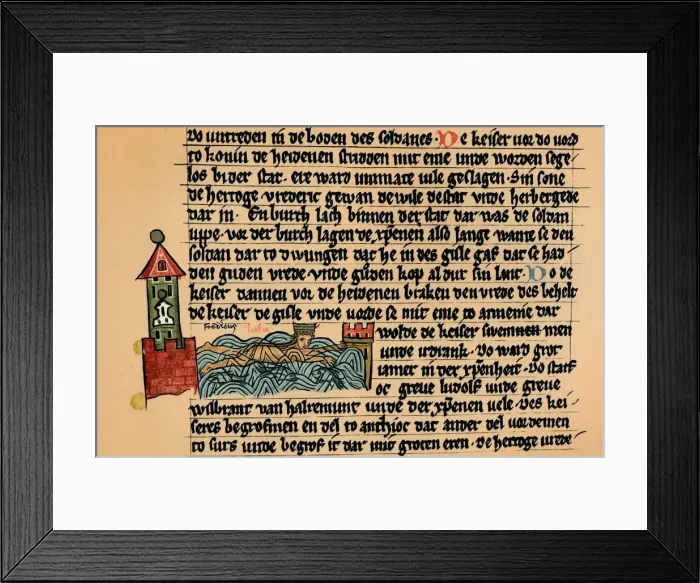 Do untreden in de boden des soldanes · De keiser vor do vord
to konin de heidenen stridden mit eme unde worden sege
los bi der stat · ere ward ummate vile geslagen · Sin sone
de hertoge vrederic gewan de wile de stat unde herbergede
dar in · En burch lach binnen der stat dar was de soldan
uppe · vor der burch lagen de xpenen also lange wante se den
soldan dar to dwungen dat he in des gisle gaf dat se had
den guden vrede unde guden kop al dur sin lant · Do de
keiser dannen vor de heidenen braken den vrede des behelt
de keiser de gisle unde vorde se mit eme to armenie dar
Fredericus
wolde de keiser swemmen
unde irdrank · Do ward grot
iamer in der xpenheit · Do starf
oc greve ludolf unde greve
wilbrant van halremunt unde der xpenen vele · Des kei
seres begrofmen en del to anthioc dat ander del vordemen
to surs unde begrof it dar mit groten eren · de hertoge vrede